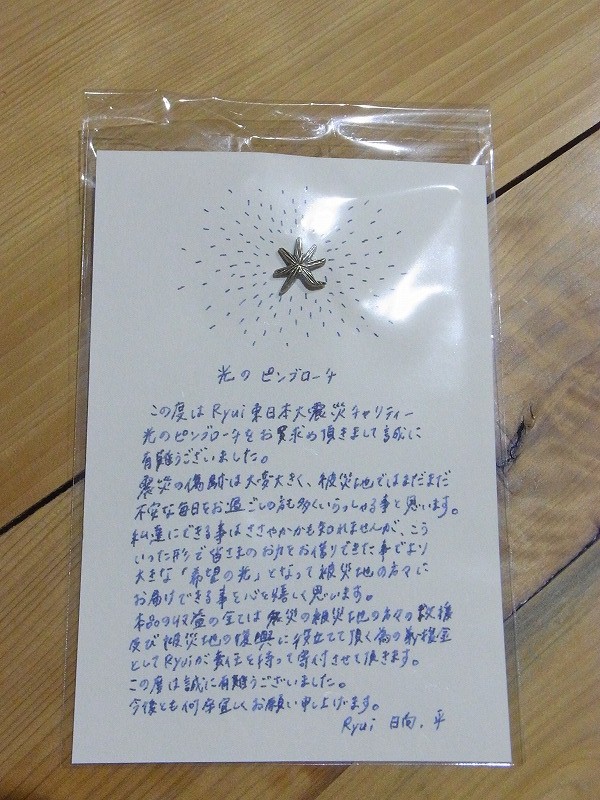 光のピンブローチ
この度はRyui東日本大震災チャリティー
光のピンブローチをお買求め頂きまして誠に
有難うございました。
震災の傷跡は大変大きく、被災地ではまだまだ
不安な毎日をお過ごしの方も多くいらっしゃる事と思います。
私達にできる事はささやかかも知れませんが、こう
いった形で皆さまのお力をお借りできた事でより
大きな「希望の光」となって被災地の方々に
お届けできる事を心を嬉しく思います。
本品の収益の全ては震災の被災地の方々の救援
及び被災地の復興に役立てて頂く為の義援金
としてRyuiが責任を持って寄付させて頂きます。
この度は誠に有難うございました。
今後とも何卒宜しくお願い申し上げます。
Ryui 日向